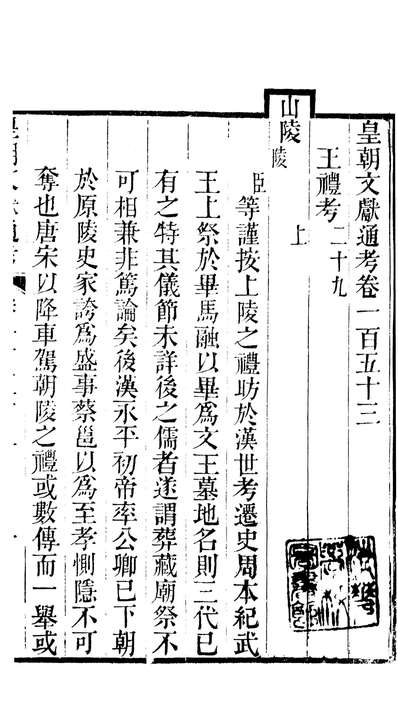 皇朝文獻通考卷一百五十三
王禮考二十九
山陵
上
陵
臣等謹按上陵之禮昉於漢世考遷史周本紀武
王上祭於畢馬融以畢為文王墓地名則三代已
有之特其儀節未詳後之儒者遂謂葬藏廟祭不
可相兼非篤論矣後漢永平初帝率公卿已下朝
於原陵史家誇為盛事蔡邕以為至孝惻隱不可
奪也唐宋以降車駕朝陵之禮或數傳而一舉或
皇朝文獻通考